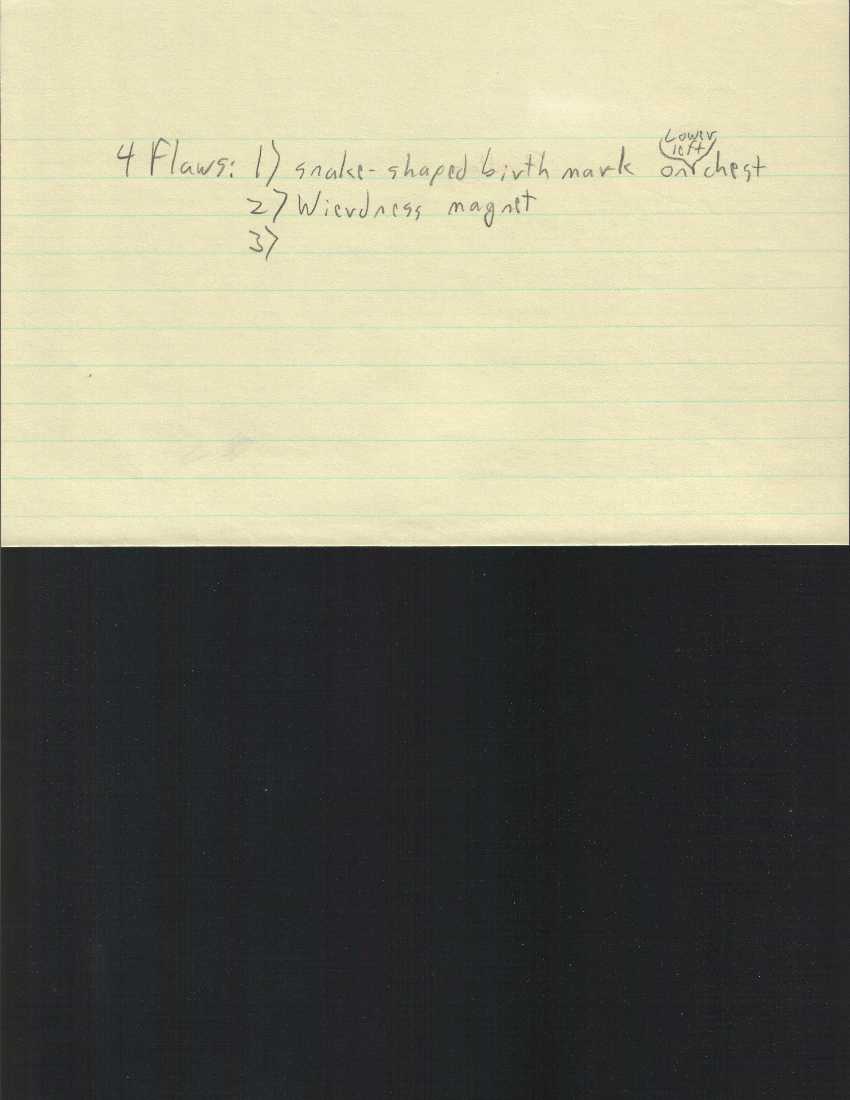 4 Flaws: 1) snake-shaped birth mark on lower left chest
2) Wierdness magnet
3)